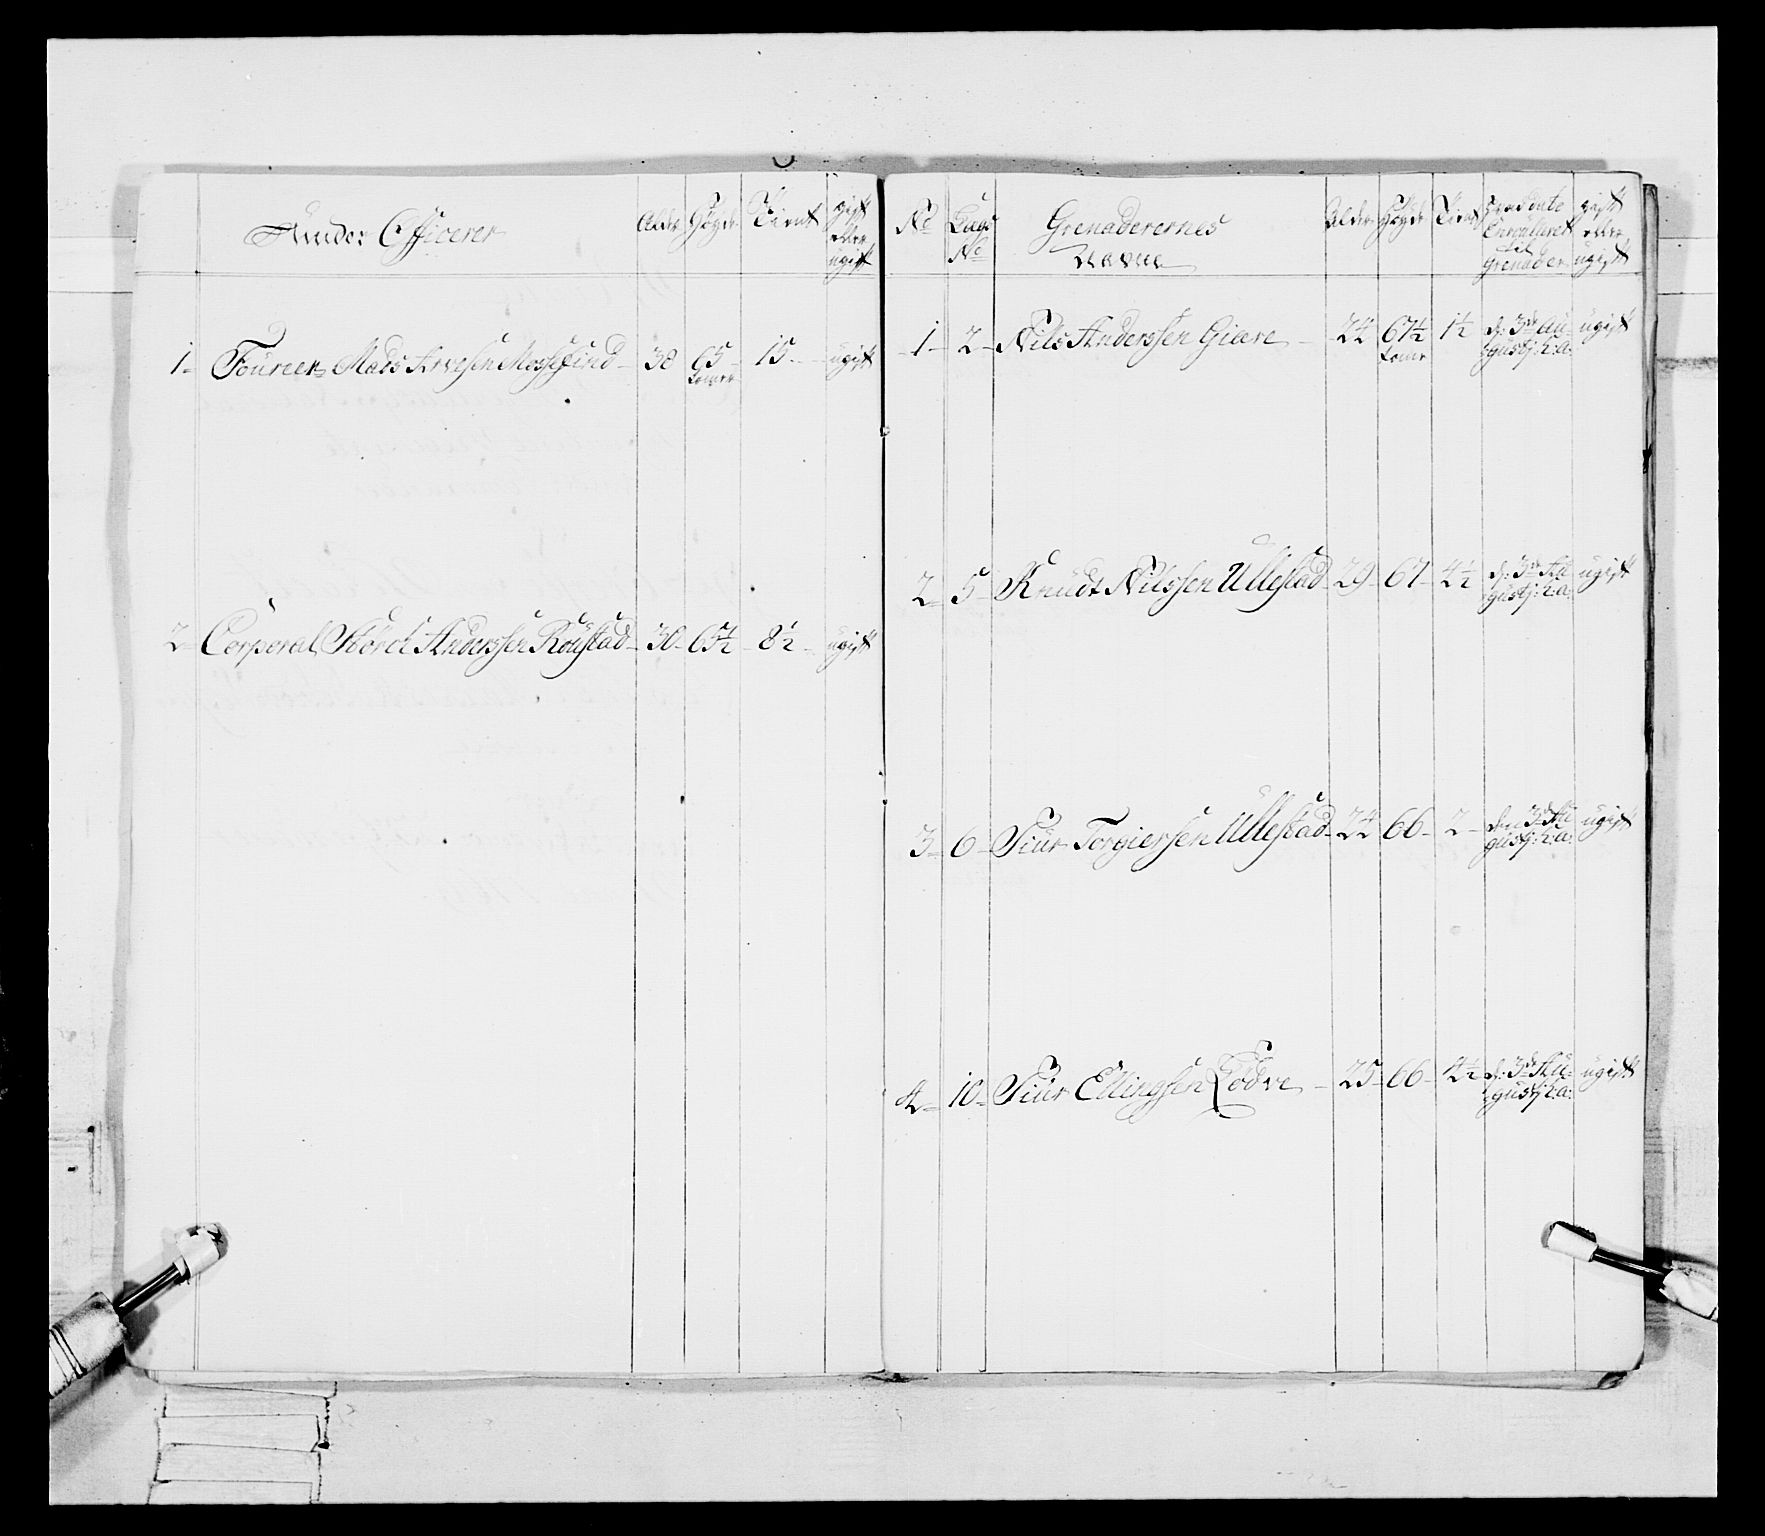 Under Officerer Alder Høyde Tient gift eller ugift
1 Foureer Mads Arvesen Mossefind 38 65 tomer 15 ugift
2 Corporal Anderssen Roustad 30 65½ 8½ ugift
No Laugs No Grenaderernes Navne Alder Høyde Tient Enroulleret til Grenader gift eller ugift
1 2 Nils Anderssen Giære 24 67½ tomr 1½ d: 3de Au
gustj: h: a: ugift
2 5 Knudt Nilssen Ullestad 29 67 4½ d: 3de Au
gustj: h: a: ugift
3 6 Siur Torgiersen Ullestad 24 66 2 den 3de Au
gustj: h: a: ugift
4 10 Siur Ellingsen Lødve 25 66 4½ d: 3de Au
gustj: h: a: ugift